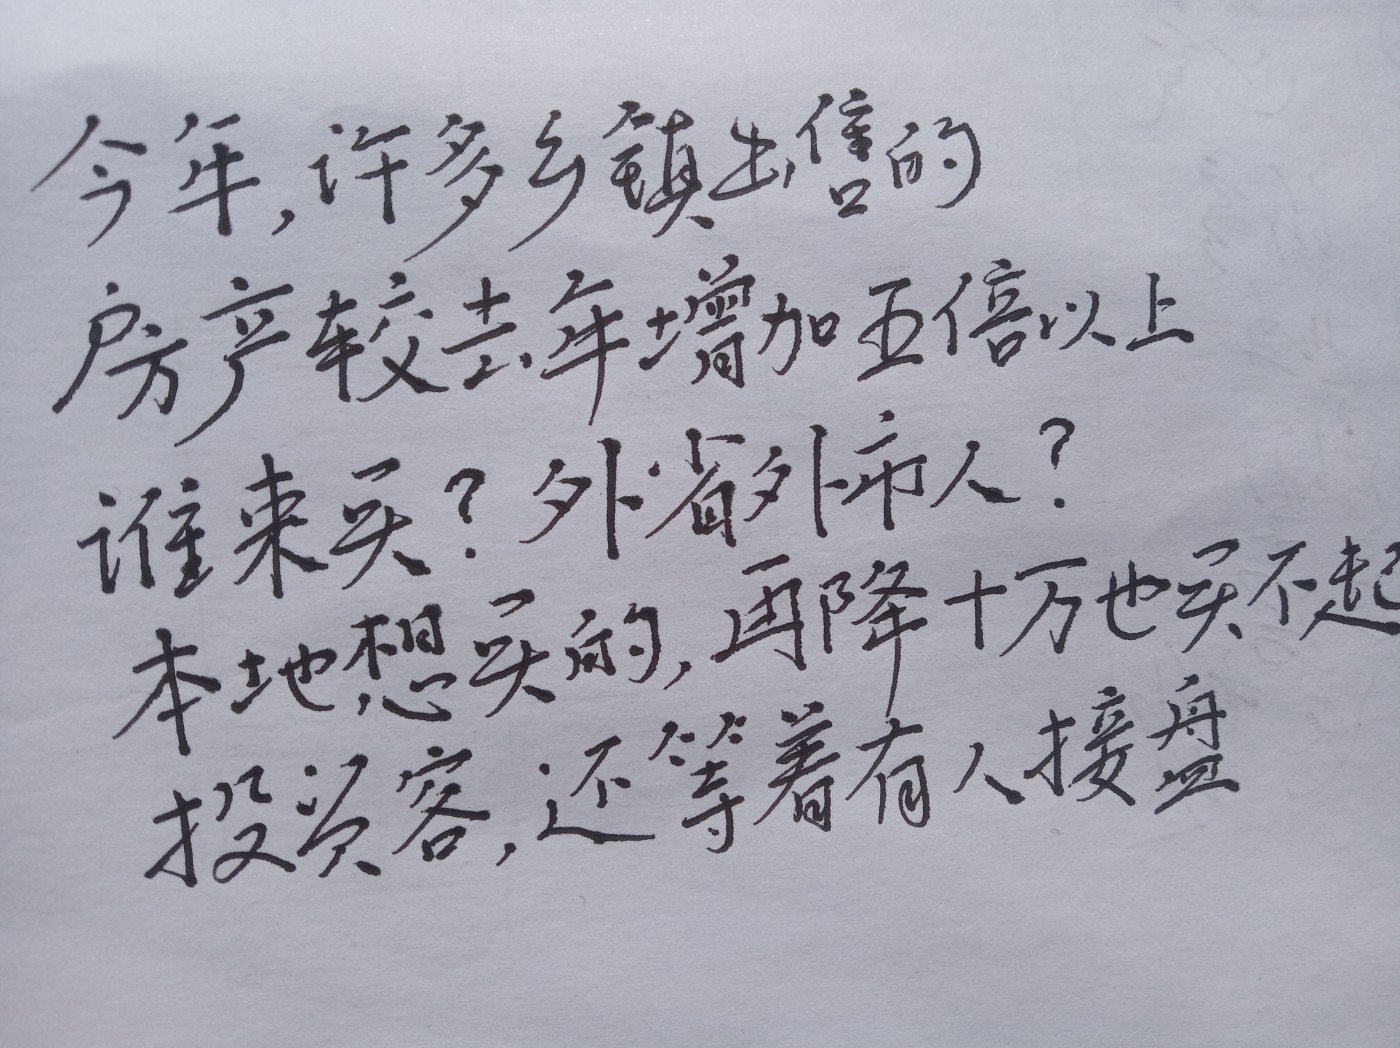 今年,许多乡镇出售的
房产较去年增加五倍以上
谁来买?外省外市人?
本地想买的,再降十万也买不起
投资客,还等着有人接盘